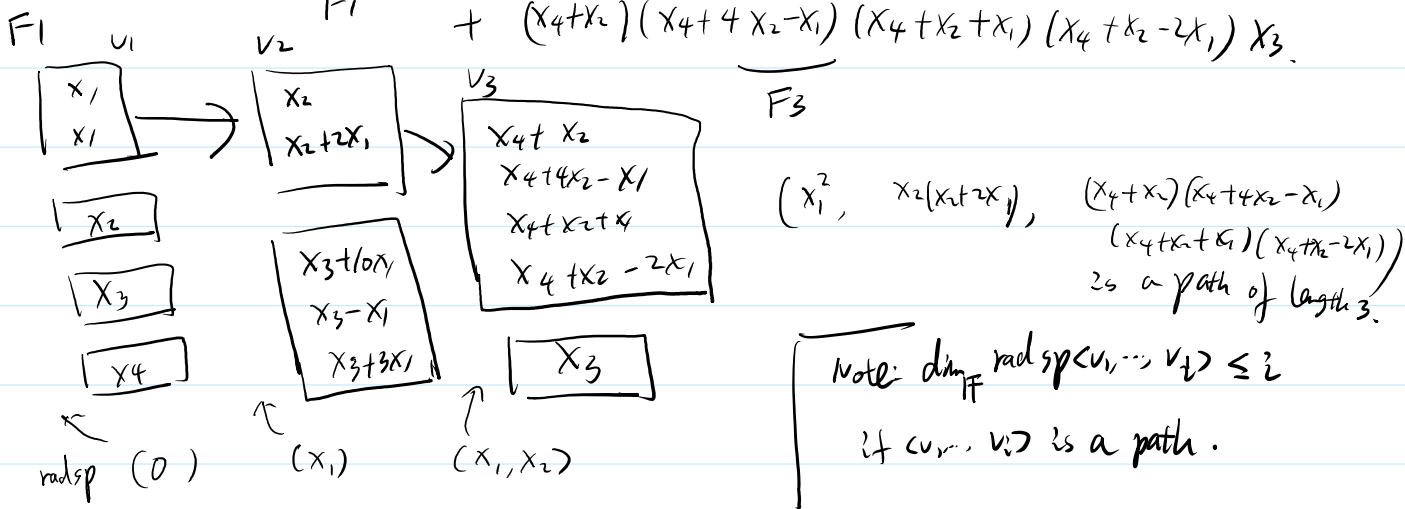 F1
+ (x₄+x₂)(x₄+4x₂-x₁)(x₄+x₂+x₁)(x₄+x₂-2x₁)x₃.
F1 v₁ v₂ v₃ F3
x₁
x₁
x₂
x₃
x₄
radsp (0)
x₂
x₂+2x₁
x₃+10x₁
x₃-x₁
x₃+3x₁
(x₁)
x₄+x₂
x₄+4x₂-x₁
x₄+x₂+x₁
x₄+x₂-2x₁
x₃
(x₁,x₂)
(x₁², x₂(x₂+2x₁), (x₄+x₂)(x₄+4x₂-x₁)
(x₄+x₂+x₁)(x₄+x₂-2x₁))
is a path of length 3.
Note: dim_𝔽 radsp<v₁,…, vᵢ> ≤ i
if <v₁,…, vᵢ> is a path.